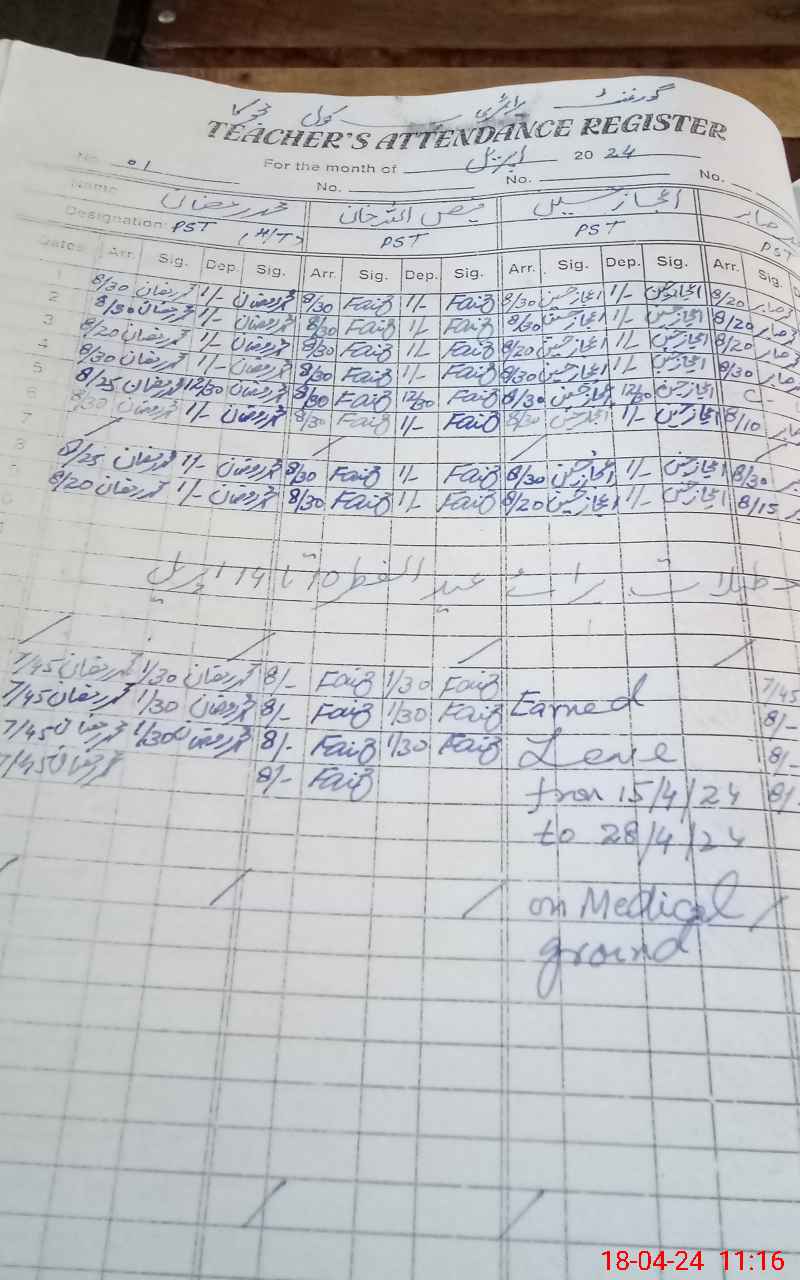 گورنمنٹ پرائمری سکول
TEACHER'S ATTENDANCE REGISTER
No. 01 For the month of اپریل 2024
No. No. No.
Name محمد رمضان فیض اللہ خان اعجاز حسین صابر
Designation: PST (H/T) PST PST PST
Dates Arr. Sig. Dep. Sig. Arr. Sig. Dep. Sig. Arr. Sig. Dep. Sig. Arr. Sig.
1 8/30 محمد رمضان 1/- محمد رمضان 8/30 Faiz 1/- Faiz 8/30 اعجاز حسین 1/- اعجاز حسین 8/20
2 8/30 محمد رمضان 1/- محمد رمضان 8/30 Faiz 1/- Faiz 8/30 اعجاز حسین 1/- اعجاز حسین 8/20
3 8/20 محمد رمضان 1/- محمد رمضان 8/30 Faiz 1/- Faiz 8/20 اعجاز حسین 1/- اعجاز حسین 8/20
4 8/30 محمد رمضان 1/- محمد رمضان 8/30 Faiz 1/- Faiz 8/30 اعجاز حسین 1/- اعجاز حسین 8/30
5 8/25 محمد رمضان 12/30 محمد رمضان 8/30 Faiz 12/30 Faiz 8/30 اعجاز حسین 12/30 اعجاز حسین C-
6 8/30 محمد رمضان 1/- محمد رمضان 8/30 Faiz 1/- Faiz 8/30 اعجاز حسین 1/- اعجاز حسین 8/10
7
8 8/25 محمد رمضان 1/- محمد رمضان 8/30 Faiz 1/- Faiz 8/30 اعجاز حسین 1/- اعجاز حسین 8/30
8/20 محمد رمضان 1/- محمد رمضان 8/30 Faiz 1/- Faiz 8/20 اعجاز حسین 1/- اعجاز حسین 8/15
تعطیلات برائے عید الفطر 10 تا 14 اپریل
7/45 محمد رمضان 1/30 محمد رمضان 8/- Faiz 1/30 Faiz 7/45
7/45 محمد رمضان 1/30 محمد رمضان 8/- Faiz 1/30 Faiz Earned 8/-
7/45 محمد رمضان 1/30 محمد رمضان 8/- Faiz 1/30 Faiz Leve 8/-
7/45 محمد رمضان 8/- Faiz from 15/4/24 8/-
to 28/4/24
on Medical
ground
18-04-24 11:16